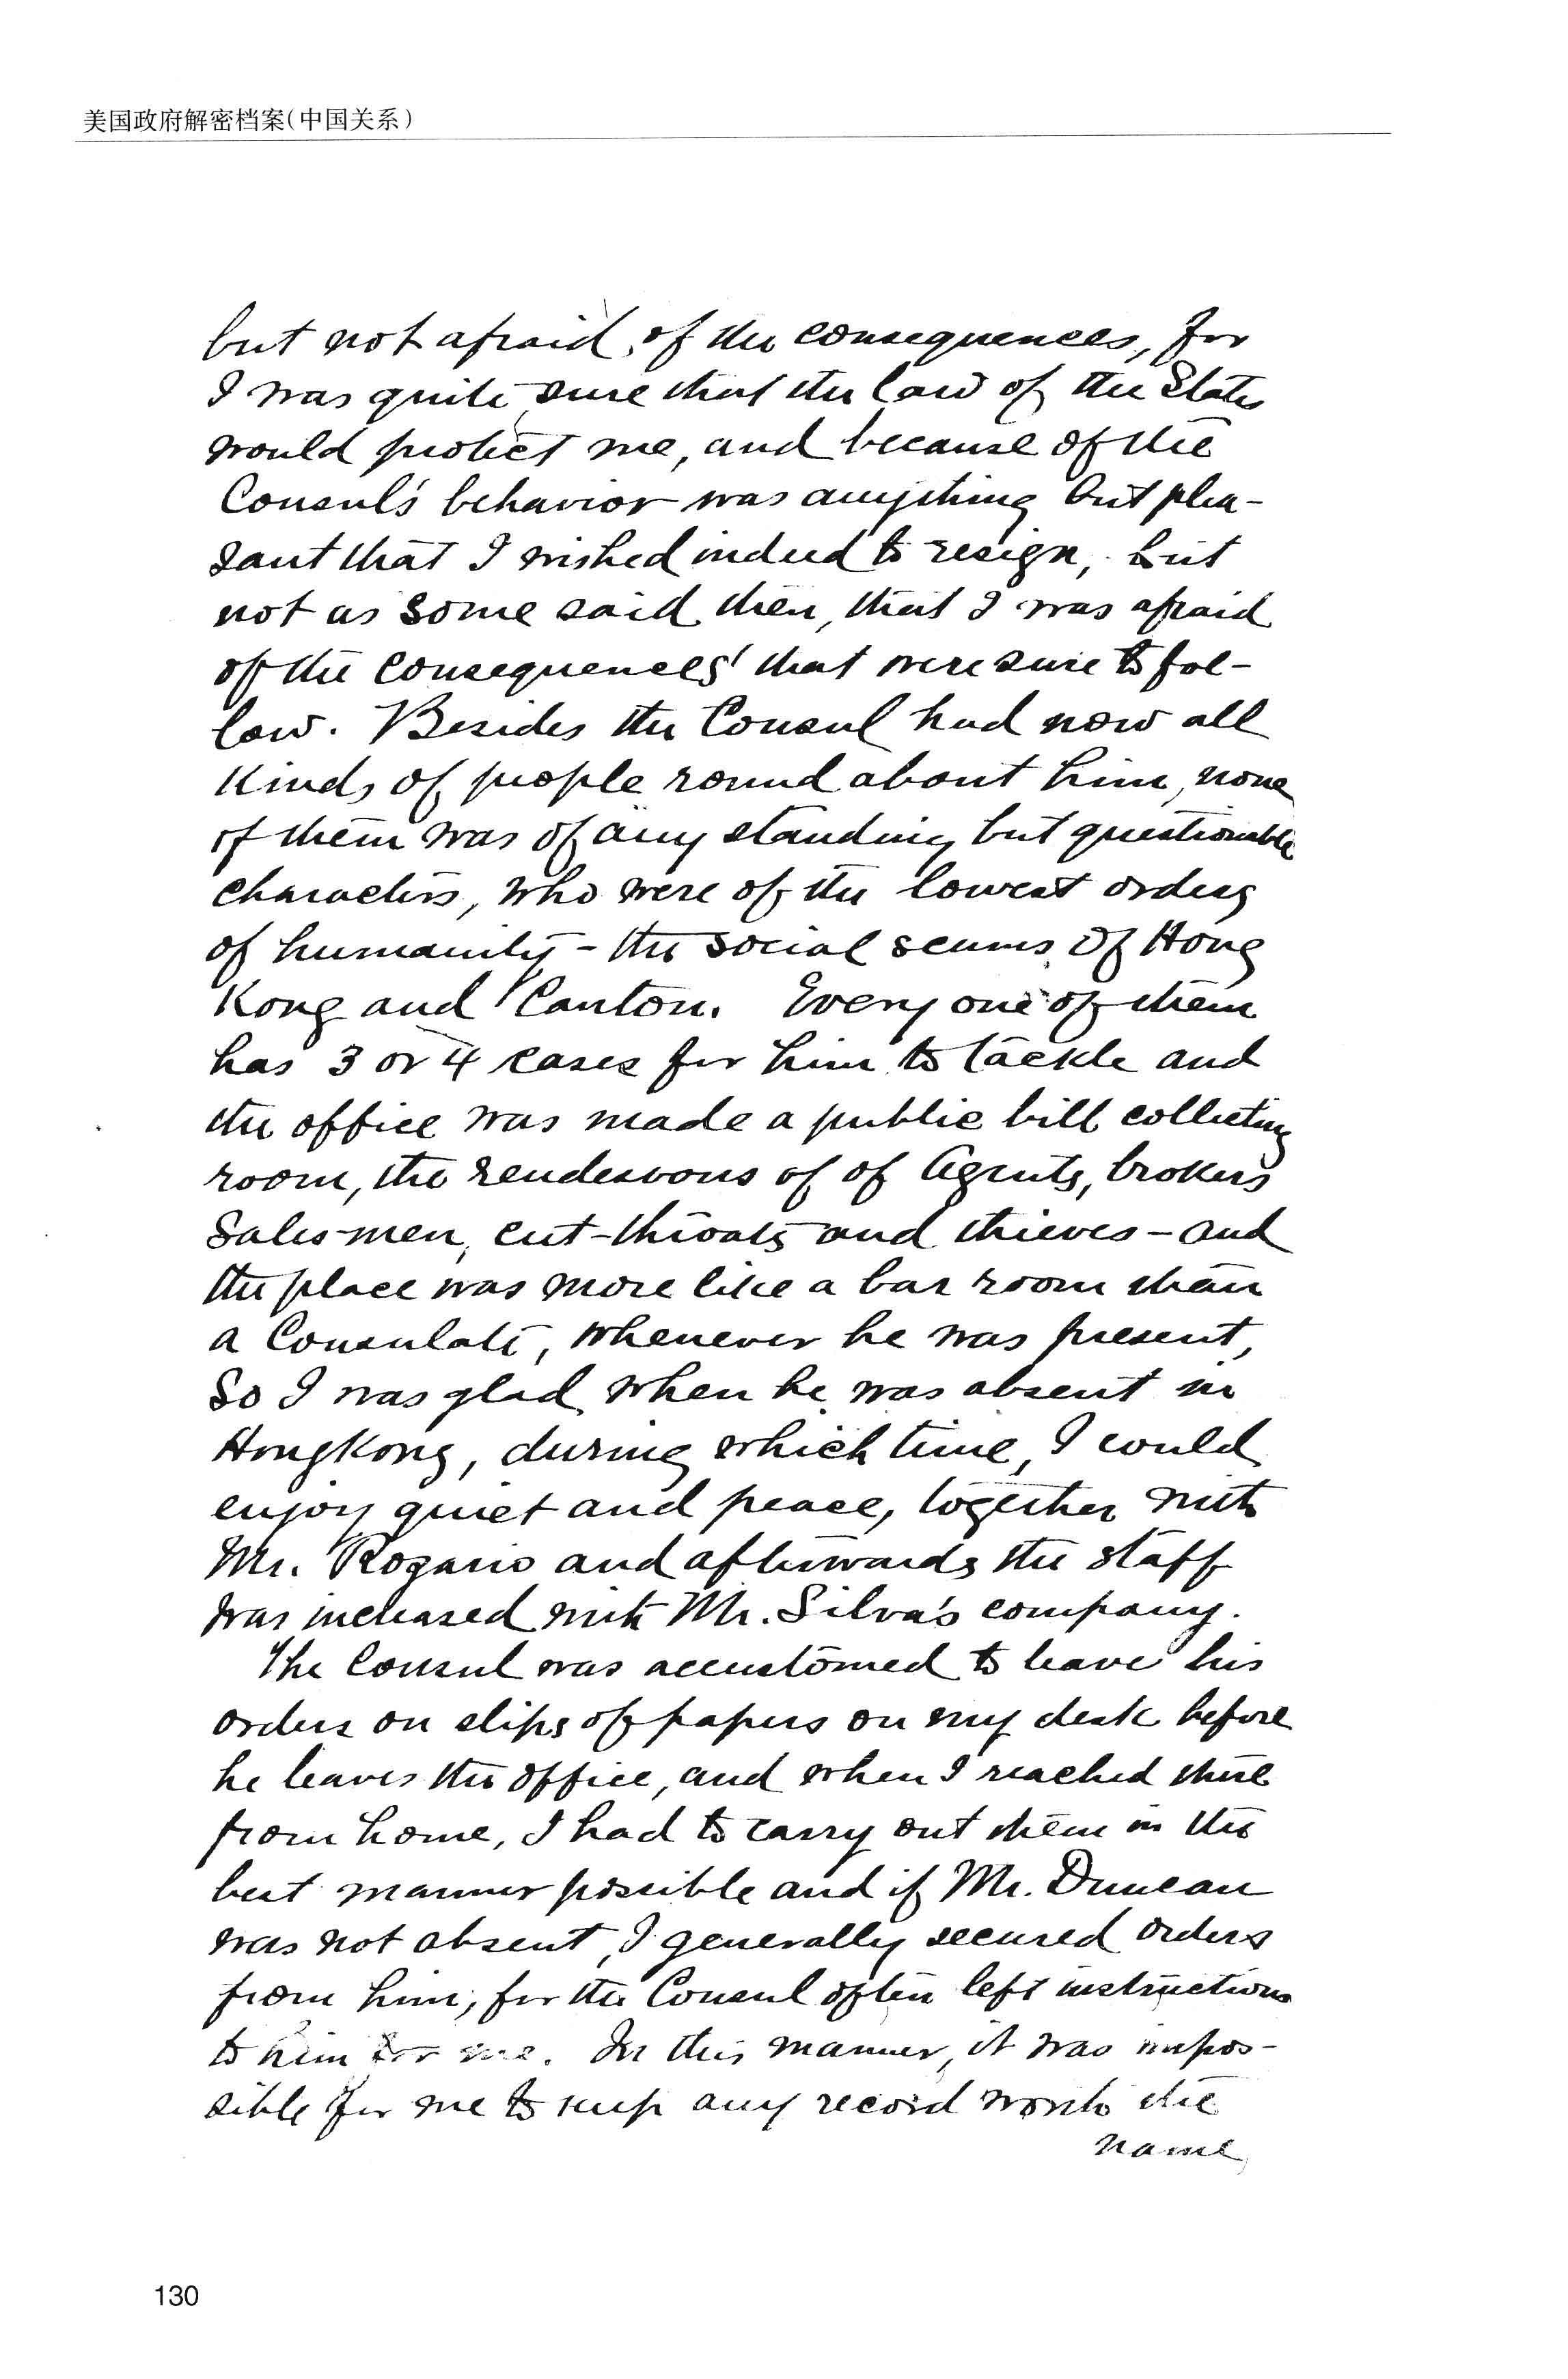 美国政府解密档案(中国关系)
but not afraid, of the consequences, for
I was quite sure that the law of the States
would protect me, and because of the
Consul's behavior was anything but plea-
sant that I wished indeed to resign, but
not as some said then, that I was afraid
of the consequences' that were sure to fol-
low. Besides the Consul had now all
kinds of people round about him, none
of them was of any standing but questionable
characters, who were of the lowest orders
of humanity - the social scums of Hong
Kong and Canton. Every one of them
has 3 or 4 cases for him to tackle and
the office was made a public bill collecting
room, the rendesvous of of Agents, brokers
Sales-men, cut-throats and thieves - and
the place was more like a bar room than
a Consulate, whenever he was present,
So I was glad when he was absent in
HongKong, during which time, I could
enjoy quiet and peace, together with
Mr. Rozario and afterwards the staff
was increased with Mr. Silva's company.
The Consul was accustomed to leave his
orders on slips of papers on my desk before
he leaves the office, and when I reached there
from home, I had to carry out them in the
best manner possible and if Mr. Duncan
was not absent, I generally secured orders
from him, for the Consul often left instructions
to him for me. In this manner, it was impos-
sible for me to keep any record worth the
name
130